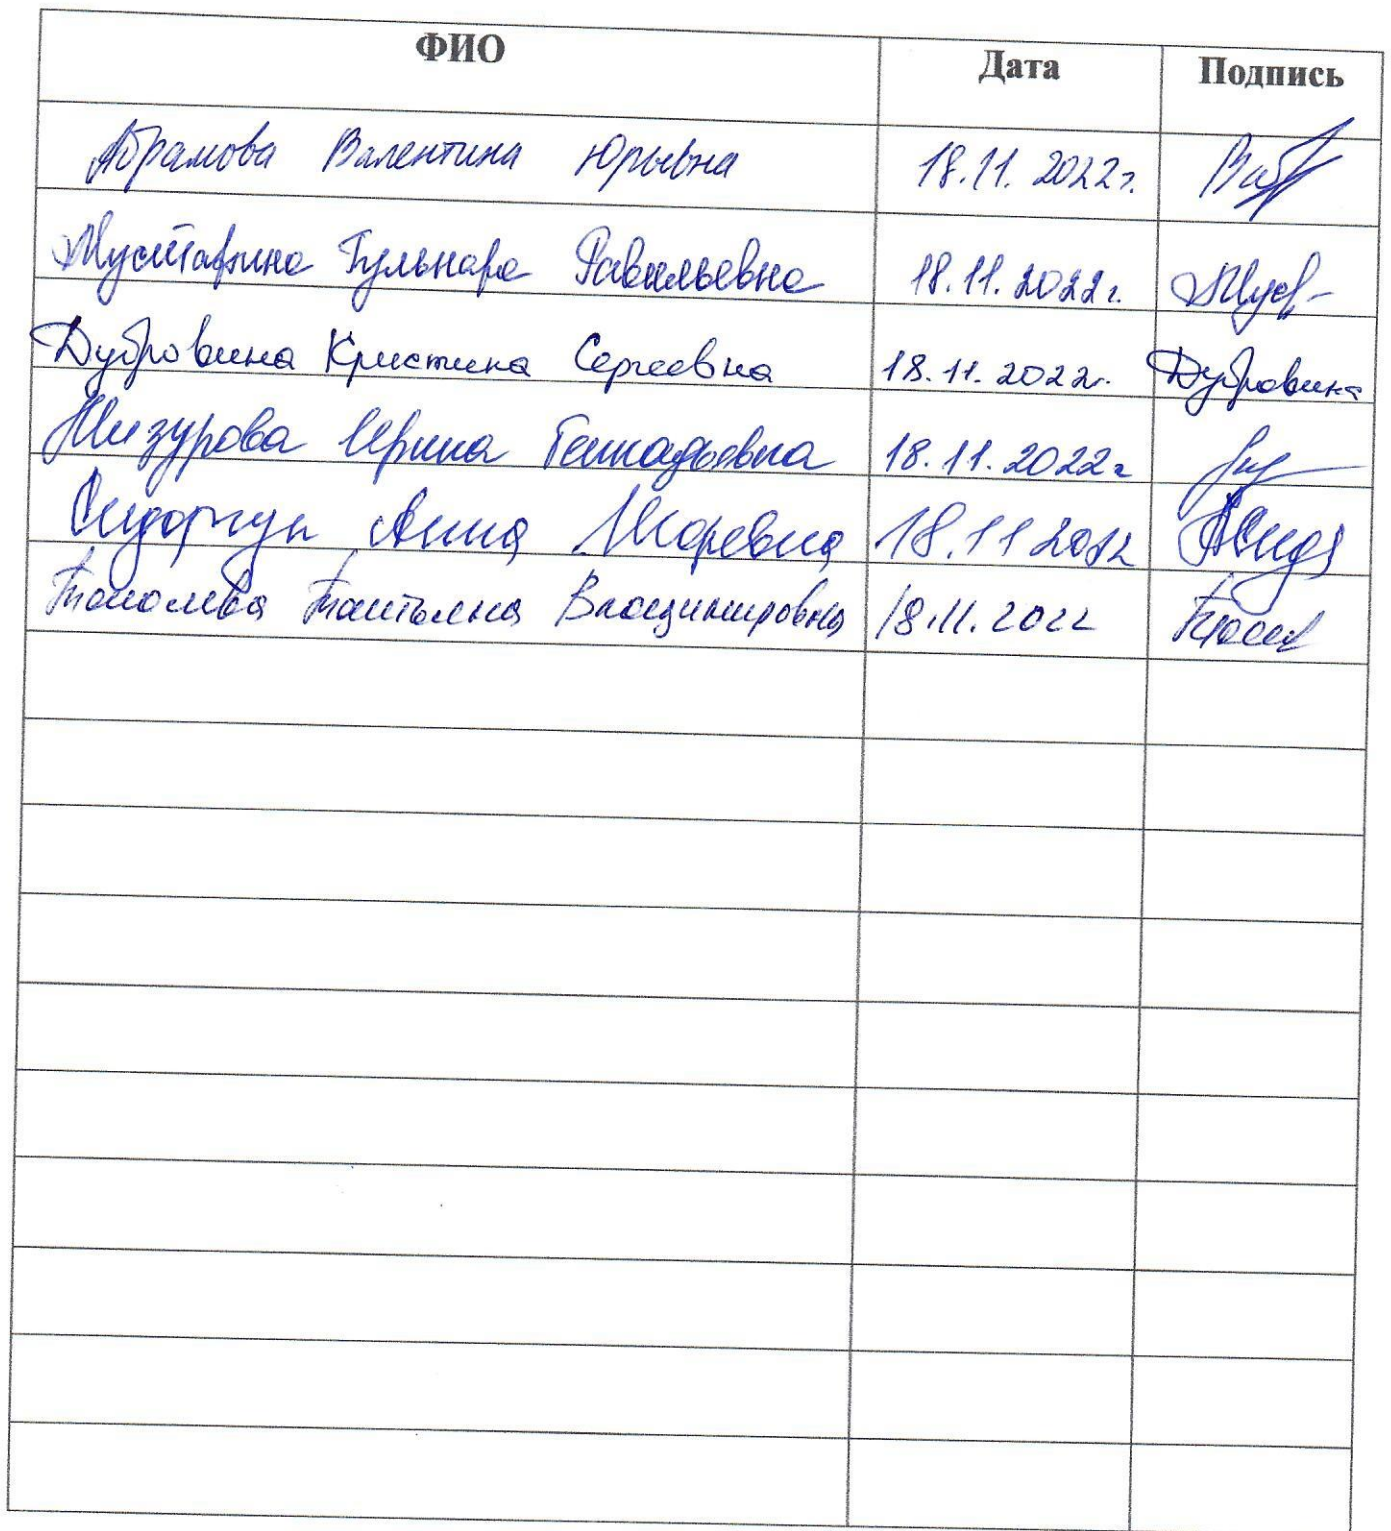 ФИО Дата Подпись
Абрамова Валентина Юрьевна 18.11.2022г.
Мустафина Гульнара Равильевна 18.11.2022г.
Дубровина Кристина Сергеевна 18.11.2022г. Дубровина
Мизурова Ирина Геннадьевна 18.11.2022г
Сидорчук Анна Игоревна 18.11 2022
Татьяна Владимировна 18.11.2022